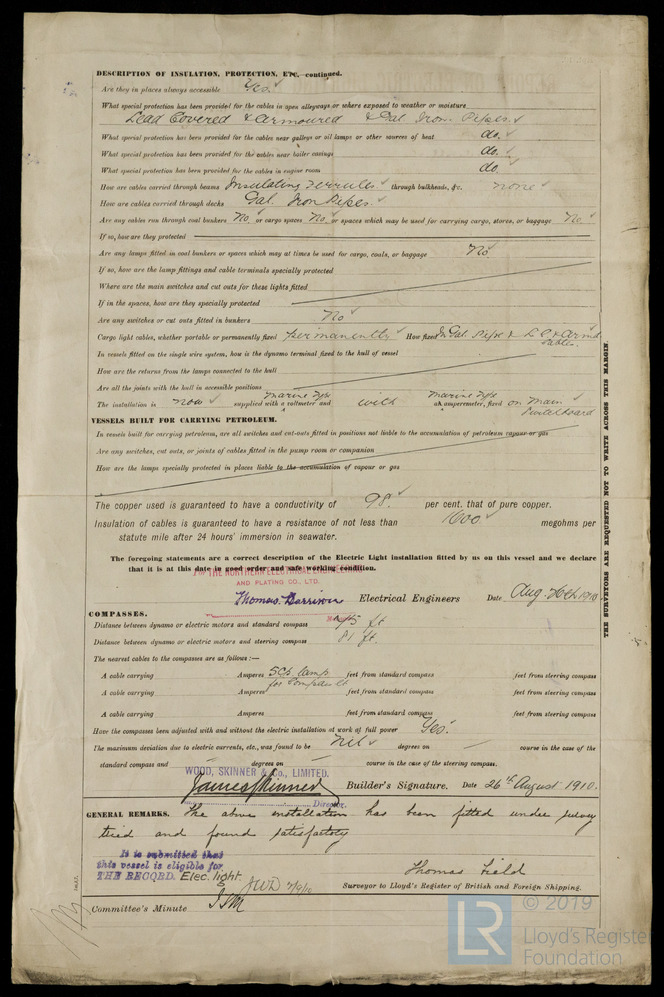 DESCRIPTION OF INSULATION, PROTECTION, ETC. continued.
Are they in places always accessible Yes.
What special protection has been provided for the cables in open alleyways or where exposed to weather or moisture
Lead Covered & armoured & Gal Iron Pipes
What special protection has been provided for the cables near galleys or oil lamps or other sources of heat do.
What special protection has been provided for the cables near boiler casings do.
What special protection has been provided for the cables in engine room do.
How are cables carried through beams Insulating ferrules through bulkheads, &c. none
How are cables carried through decks Gal. Iron Pipes.
Are any cables run through coal bunkers No. or cargo spaces No. or spaces which may be used for carrying cargo, stores, or baggage No.
If so, how are they protected
Are any lamps fitted in coal bunkers or spaces which may at times be used for cargo, coals, or baggage No
If so, how are the lamp fittings and cable terminals specially protected
Where are the main switches and cut outs for these lights fitted
If in the spaces, how are they specially protected
Are any switches or cut outs fitted in bunkers No
Cargo light cables, whether portable or permanently fixed permanently How fixed In Gal Pipe & L.C. & Armd cables.
In vessels fitted on the single wire system, how is the dynamo terminal fixed to the hull of vessel
How are the returns from the lamps connected to the hull
Are all the joints with the hull in accessible positions
The installation is now supplied with a marine type voltmeter and with marine type an amperemeter, fixed on main switchboard
VESSELS BUILT FOR CARRYING PETROLEUM.
In vessels built for carrying petroleum, are all switches and cut-outs fitted in positions not liable to the accumulation of petroleum vapour or gas
Are any switches, cut outs, or joints of cables fitted in the pump room or companion
How are the lamps specially protected in places liable to the accumulation of vapour or gas
The copper used is guaranteed to have a conductivity of 98. per cent. that of pure copper.
Insulation of cables is guaranteed to have a resistance of not less than 1600 megohms per
statute mile after 24 hours' immersion in seawater.
The foregoing statements are a correct description of the Electric Light installation fitted by us on this vessel and we declare
that it is at this date in good order and safe working condition.
For THE NORTHERN ELECTRICAL ENGINEERING
AND PLATING CO. LTD.
Thomas Harrison Electrical Engineers Date Aug 26th 1910
COMPASSES.
Distance between dynamo or electric motors and standard compass 75 ft
Distance between dynamo or electric motors and steering compass 81 ft.
The nearest cables to the compasses are as follows:—
A cable carrying Amperes 5Cp lamp feet from standard compass feet from steering compass
for Compass lt
A cable carrying Amperes feet from standard compass feet from steering compass
A cable carrying Amperes feet from standard compass feet from steering compass
Have the compasses been adjusted with and without the electric installation at work at full power Yes.
The maximum deviation due to electric currents, etc., was found to be Nil degrees on course in the case of the
standard compass and degrees on course in the case of the steering compass.
WOOD, SKINNER & Co., LIMITED.
James Skinner Builder's Signature. Date 26th August 1910.
Director.
GENERAL REMARKS. The above installation has been fitted under survey
tried and found satisfactory
It is submitted that
this vessel is eligible for
THE RECORD. Elec. light.
JWD 7/9/10
Thomas Field
Surveyor to Lloyd's Register of British and Foreign Shipping.
Committee's Minute
THE SURVEYORS ARE REQUESTED NOT TO WRITE ACROSS THIS MARGIN.
LR
© 2019
Lloyd's Register
Foundation